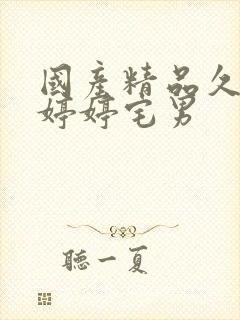 國產精品久
婷婷宅男
聽一夏